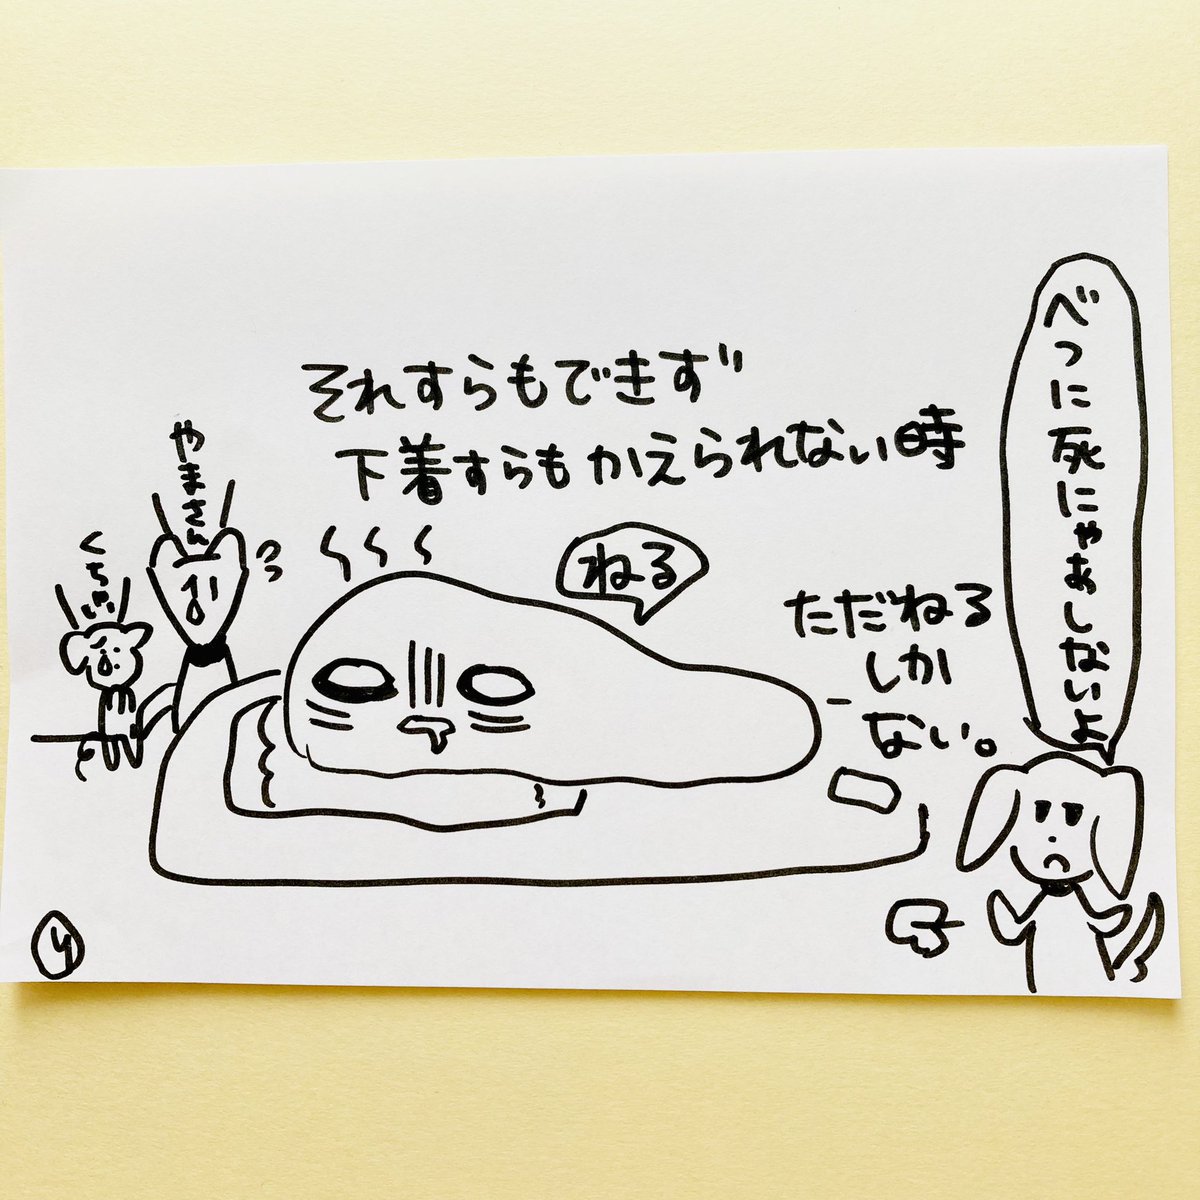 それすらもできず
下着すらもかえられない時
ねる
ただねる
しか
ない。
べつに死にゃあしないよ
やまさん